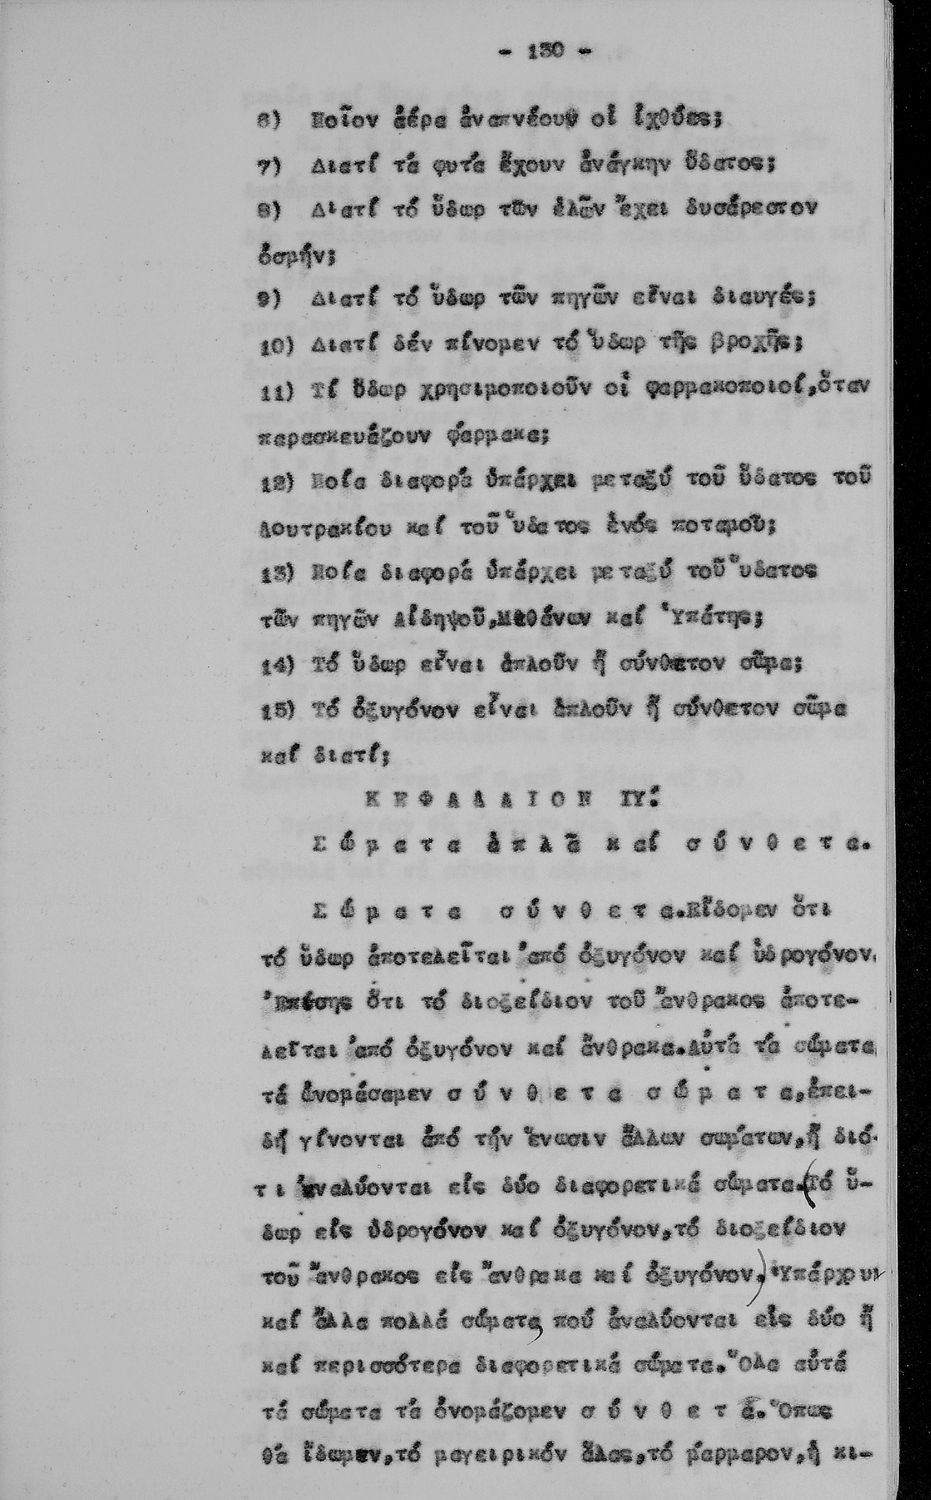 - 130 -
6) Ποῖον ἀέρα ἀναπνέουν οἱ ἰχθύες;
7) Διατί τά φυτά ἔχουν ἀνάγκην ὕδατος;
8) Διατί τό ὕδωρ τῶν ἑλῶν ἔχει δυσάρεστον
ὀσμήν;
9) Διατί τό ὕδωρ τῶν πηγῶν εἶναι διαυγές;
10) Διατί δέν πίνομεν τό ὕδωρ τῆς βροχῆς;
11) Τί ὕδωρ χρησιμοποιοῦν οἱ φαρμακοποιοί,ὅταν
παρασκευάζουν φάρμακα;
12) Ποία διαφορά ὑπάρχει μεταξύ τοῦ ὕδατος τοῦ
Λουτρακίου καί τοῦ ὕδατος ἑνός ποταμοῦ;
13) Ποία διαφορά ὑπάρχει μεταξύ τοῦ ὕδατος
τῶν πηγῶν Αἰδηψοῦ,Μεθάνων καί Ὑπάτης;
14) Τό ὕδωρ εἶναι ἁπλοῦν ἤ σύνθετον σῶμα;
15) Τό ὀξυγόνον εἶναι ἁπλοῦν ἤ σύνθετον σῶμα
καί διατί;
Κ Ε Φ Α Λ Α Ι Ο Ν ΙΥ:
Σ ώ μ α τ α ἁ π λ ᾶ κ αί σ ύ ν θ ε τ α.
Σ ώ μ α τ α σ ύ ν θ ε τ α.Εἴδομεν ὅτι
τό ὕδωρ ἀποτελεῖται ἀπό ὀξυγόνον καί ὑδρογόνον.
Ἐπίσης ὅτι τό διοξείδιον τοῦ ἄνθρακος ἀποτε-
λεῖται ἀπό ὀξυγόνον καί ἄνθρακα.Αὐτά τά σώματα
τά ὠνομάσαμεν σ ύ ν θ ε τ α σ ώ μ α τ α,ἐπει-
δή γίνονται ἀπό τήν ἕνωσιν ἄλλων σωμάτων,ἤ διό-
τι ἀναλύονται εἰς δύο διαφορετικά σώματα.(Τό ὕ-
δωρ εἰς ὑδρογόνον καί ὀξυγόνον,τό διοξείδιον
τοῦ ἄνθρακος εἰς ἄνθρακα καί ὀξυγόνον.) Ὑπάρχουν
καί ἄλλα πολλά σώματα, πού ἀναλύονται εἰς δύο ἤ
καί περισσότερα διαφορετικά σώματα.Ὅλα αὐτά
τά σώματα τά ὀνομάζομεν σ ύ ν θ ε τ ά.Ὅπως
θά ἴδωμεν,τό μαγειρικόν ἅλας,τό μάρμαρον,ἡ κι-